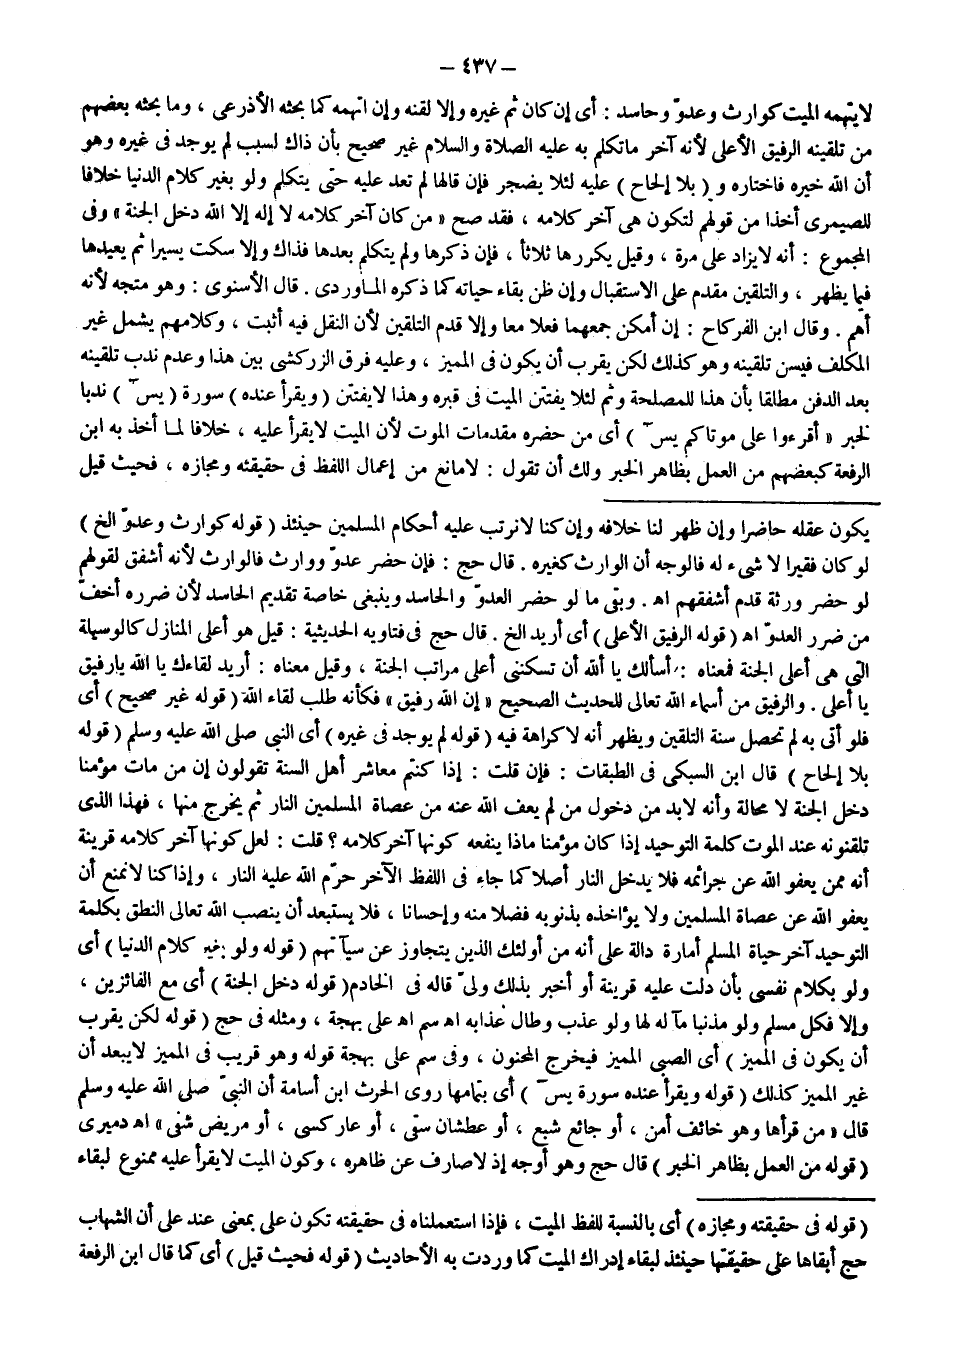 – ٤٣٧ –
لايتهمه الميت كوارث وعدوّ وحاسد : أى إن كان ثم غيره وإلا لقنه وإن اتهمه كما بحثه الأذرعى ، وما بحثه بعضهم
من تلقينه الرفيق الأعلى لأنه آخر ماتكلم به عليه الصلاة والسلام غير صحيح بأن ذاك لسبب لم يوجد فى غيره وهو
أن الله خيره فاختاره و ( بلا إلحاح ) عليه لئلا يضجر فإن قالها لم تعد عليه حتى يتكلم ولو بغير كلام الدنيا خلافا
للصيمرى أخذا من قولهم لتكون هى آخر كلامه ، فقد صح « من كان آخر كلامه لا إله إلا الله دخل الجنة » وفى
المجموع : أنه لايزاد على مرة ، وقيل يكررها ثلاثا ، فإن ذكرها ولم يتكلم بعدها فذاك وإلا سكت يسيرا ثم يعيدها
فيما يظهر ، والتلقين مقدم على الاستقبال وإن ظن بقاء حياته كما ذكره المـاوردى . قال الأسنوى : وهو متجه لأنه
أهم . وقال ابن الفركاح : إن أمكن جمعهما فعلا معا وإلا قدم التلقين لأن النقل فيه أثبت ، وكلامهم يشمل غير
المكلف فيسن تلقينه وهو كذلك لكن يقرب أن يكون فى المميز ، وعليه فرق الزركشى بين هذا وعدم ندب تلقينه
بعد الدفن مطلقا بأن هذا للمصلحة وثم لئلا يفتتن الميت فى قبره وهذا لايفتتن ( ويقرأ عنده ) سورة ( يس ) ندبا
لخبر « أقرءوا على موتاكم يس ) أى من حضره مقدمات الموت لأن الميت لايقرأ عليه ، خلافا لمـا أخذ به ابن
الرفعة كبعضهم من العمل بظاهر الخبر ولك أن تقول : لامانع من إعمال اللفظ فى حقيقته ومجازه ، فحيث قيل
يكون عقله حاضرا وإن ظهر لنا خلافه وإن كنا لانرتب عليه أحكام المسلمين حينئذ ( قوله كوارث وعدوّ الخ )
لو كان فقيرا لا شىء له فالوجه أن الوارث كغيره . قال حج : فإن حضر عدوّ ووارث فالوارث لأنه أشفق لقولهم
لو حضر ورثة قدم أشفقهم اه . وبقى ما لو حضر العدوّ والحاسد وينبغى خاصة تقديم الحاسد لأن ضرره أخفّ
من ضرر العدوّ اه ( قوله الرفيق الأعلى ) أى أريد الخ . قال حج فى فتاويه الحديثية : قيل هو أعلى المنازل كالوسيلة
التى هى أعلى الجنة فمعناه : أسألك يا ألله أن تسكننى أعلى مراتب الجنة ، وقيل معناه : أريد لقاءك يا الله يارفيق
يا أعلى . والرفيق من أسماء الله تعالى للحديث الصحيح « إن الله رفيق » فكأنه طلب لقاء الله ( قوله غير صحيح ) أى
فلو أتى به لم تحصل سنة التلقين ويظهر أنه لاكراهة فيه ( قوله لم يوجد فى غيره ) أى النبي صلى الله عليه وسلم ( قوله
بلا إلحاح ) قال ابن السبكى فى الطبقات : فإن قلت : إذا كنتم معاشر أهل السنة تقولون إن من مات مؤمنا
دخل الجنة لا محالة وأنه لابد من دخول من لم يعف الله عنه من عصاة المسلمين النار ثم يخرج منها ، فهذا الذى
تلقنونه عند الموت كلمة التوحيد إذا كان مؤمنا ماذا ينفعه كونها آخر كلامه ؟ قلت : لعل كونها آخر كلامه قرينة
أنه ممن يعفو الله عن جرائمه فلا يدخل النار أصلا كما جاء فى اللفظ الآخر حرّم الله عليه النار ، وإذا كنا لانمنع أن
يعفو الله عن عصاة المسلمين ولا يؤاخذه بذنوبه فضلا منه وإحسانا ، فلا يستبعد أن ينصب الله تعالى النطق بكلمة
التوحيد آخر حياة المسلم أمارة دالة على أنه من أولئك الذين يتجاوز عن سيآتهم ( قوله ولو بغير كلام الدنيا ) أى
ولو بكلام نفسى بأن دلت عليه قرينة أو أخبر بذلك ولىّ قاله فى الخادم ( قوله دخل الجنة ) أى مع الفائزين ،
وإلا فكل مسلم ولو مذنبا مآله لها ولو عذب وطال عذابه اه سم اه على بهجة ، ومثله فى حج ( قوله لكن يقرب
أن يكون فى المميز ) أى الصبى المميز فيخرج المجنون ، وفى سم على بهجة قوله وهو قريب فى المميز لايبعد أن
غير المميز كذلك ( قوله ويقرأ عنده سورة يس ) أى بتمامها روى الحرث ابن أسامة أن النبىّ صلى الله عليه وسلم
قال « من قرأها وهو خائف أمن ، أو جائع شبع ، أو عطشان سقى ، أو عار كسى ، أو مريض شفى » اه دميرى
( قوله من العمل بظاهر الخبر ) قال حج وهو أوجه إذ لاصارف عن ظاهره ، وكون الميت لايقرأ عليه ممنوع لبقاء
( قوله فى حقيقته ومجازه ) أى بالنسبة للفظ الميت ، فإذا استعملناه فى حقيقته تكون على بمعنى عند على أن الشهاب
حج أبقاها على حقيقتها حينئذ لبقاء إدراك الميت كما وردت به الأحاديث ( قوله فحيث قيل ) أى كما قال ابن الرفعة